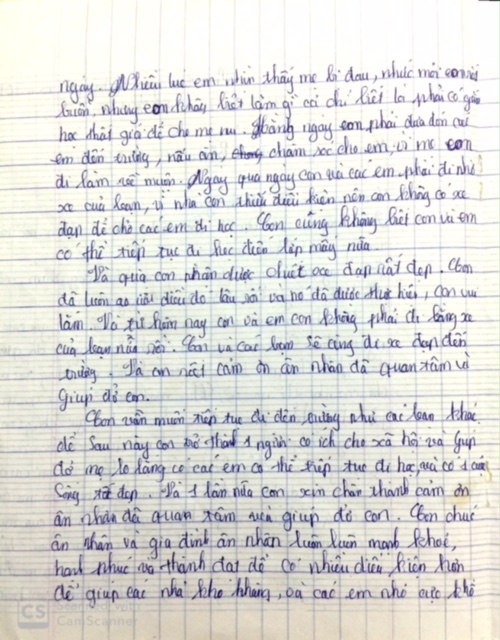 ngày. Nhiều lúc em nhìn thấy mẹ bị đau, nhức mỏi con rất
buồn, nhưng con không biết làm gì cả chỉ biết là phải cố gắng
học thật giỏi để cho mẹ vui. Hằng ngày con phải đưa đón các
em đến trường, nấu ăn, chăm sóc cho em, vì mẹ con
đi làm rất muộn. Ngày qua ngày con và các em phải đi nhờ
xe của bạn, vì nhà con thiếu điều kiện nên con không có xe
đạp để chở các em đi học. Con cũng không biết con và em
có thể tiếp tục đi học đến lớp mấy nữa.
Và qua con nhận được chiếc xe đạp rất đẹp. Con
đã luôn ao ước điều đó lâu rồi và nó đã được thực hiện, con vui
lắm. Và từ hôm nay con và em con không phải đi bằng xe
của bạn nữa rồi. Con và các bạn sẽ cùng đi xe đạp đến
trường. Và con rất cảm ơn ân nhân đã quan tâm và
giúp đỡ con.
Con vẫn muốn tiếp tục đi đến trường như các bạn khác
để sau này con trở thành 1 người có ích cho xã hội và giúp
đỡ mẹ lo lắng có các em có thể tiếp tục đi học, và có 1 cuộc
sống tốt đẹp. Và 1 lần nữa con xin chân thành cảm ơn
ân nhân đã quan tâm và giúp đỡ con. Con chúc
ân nhân và gia đình ân nhân luôn luôn mạnh khoẻ,
hạnh phúc và thành đạt để có nhiều điều kiện hơn
để giúp các nhà khó khăng, và các em nhỏ cực khổ
CS
CamScanner